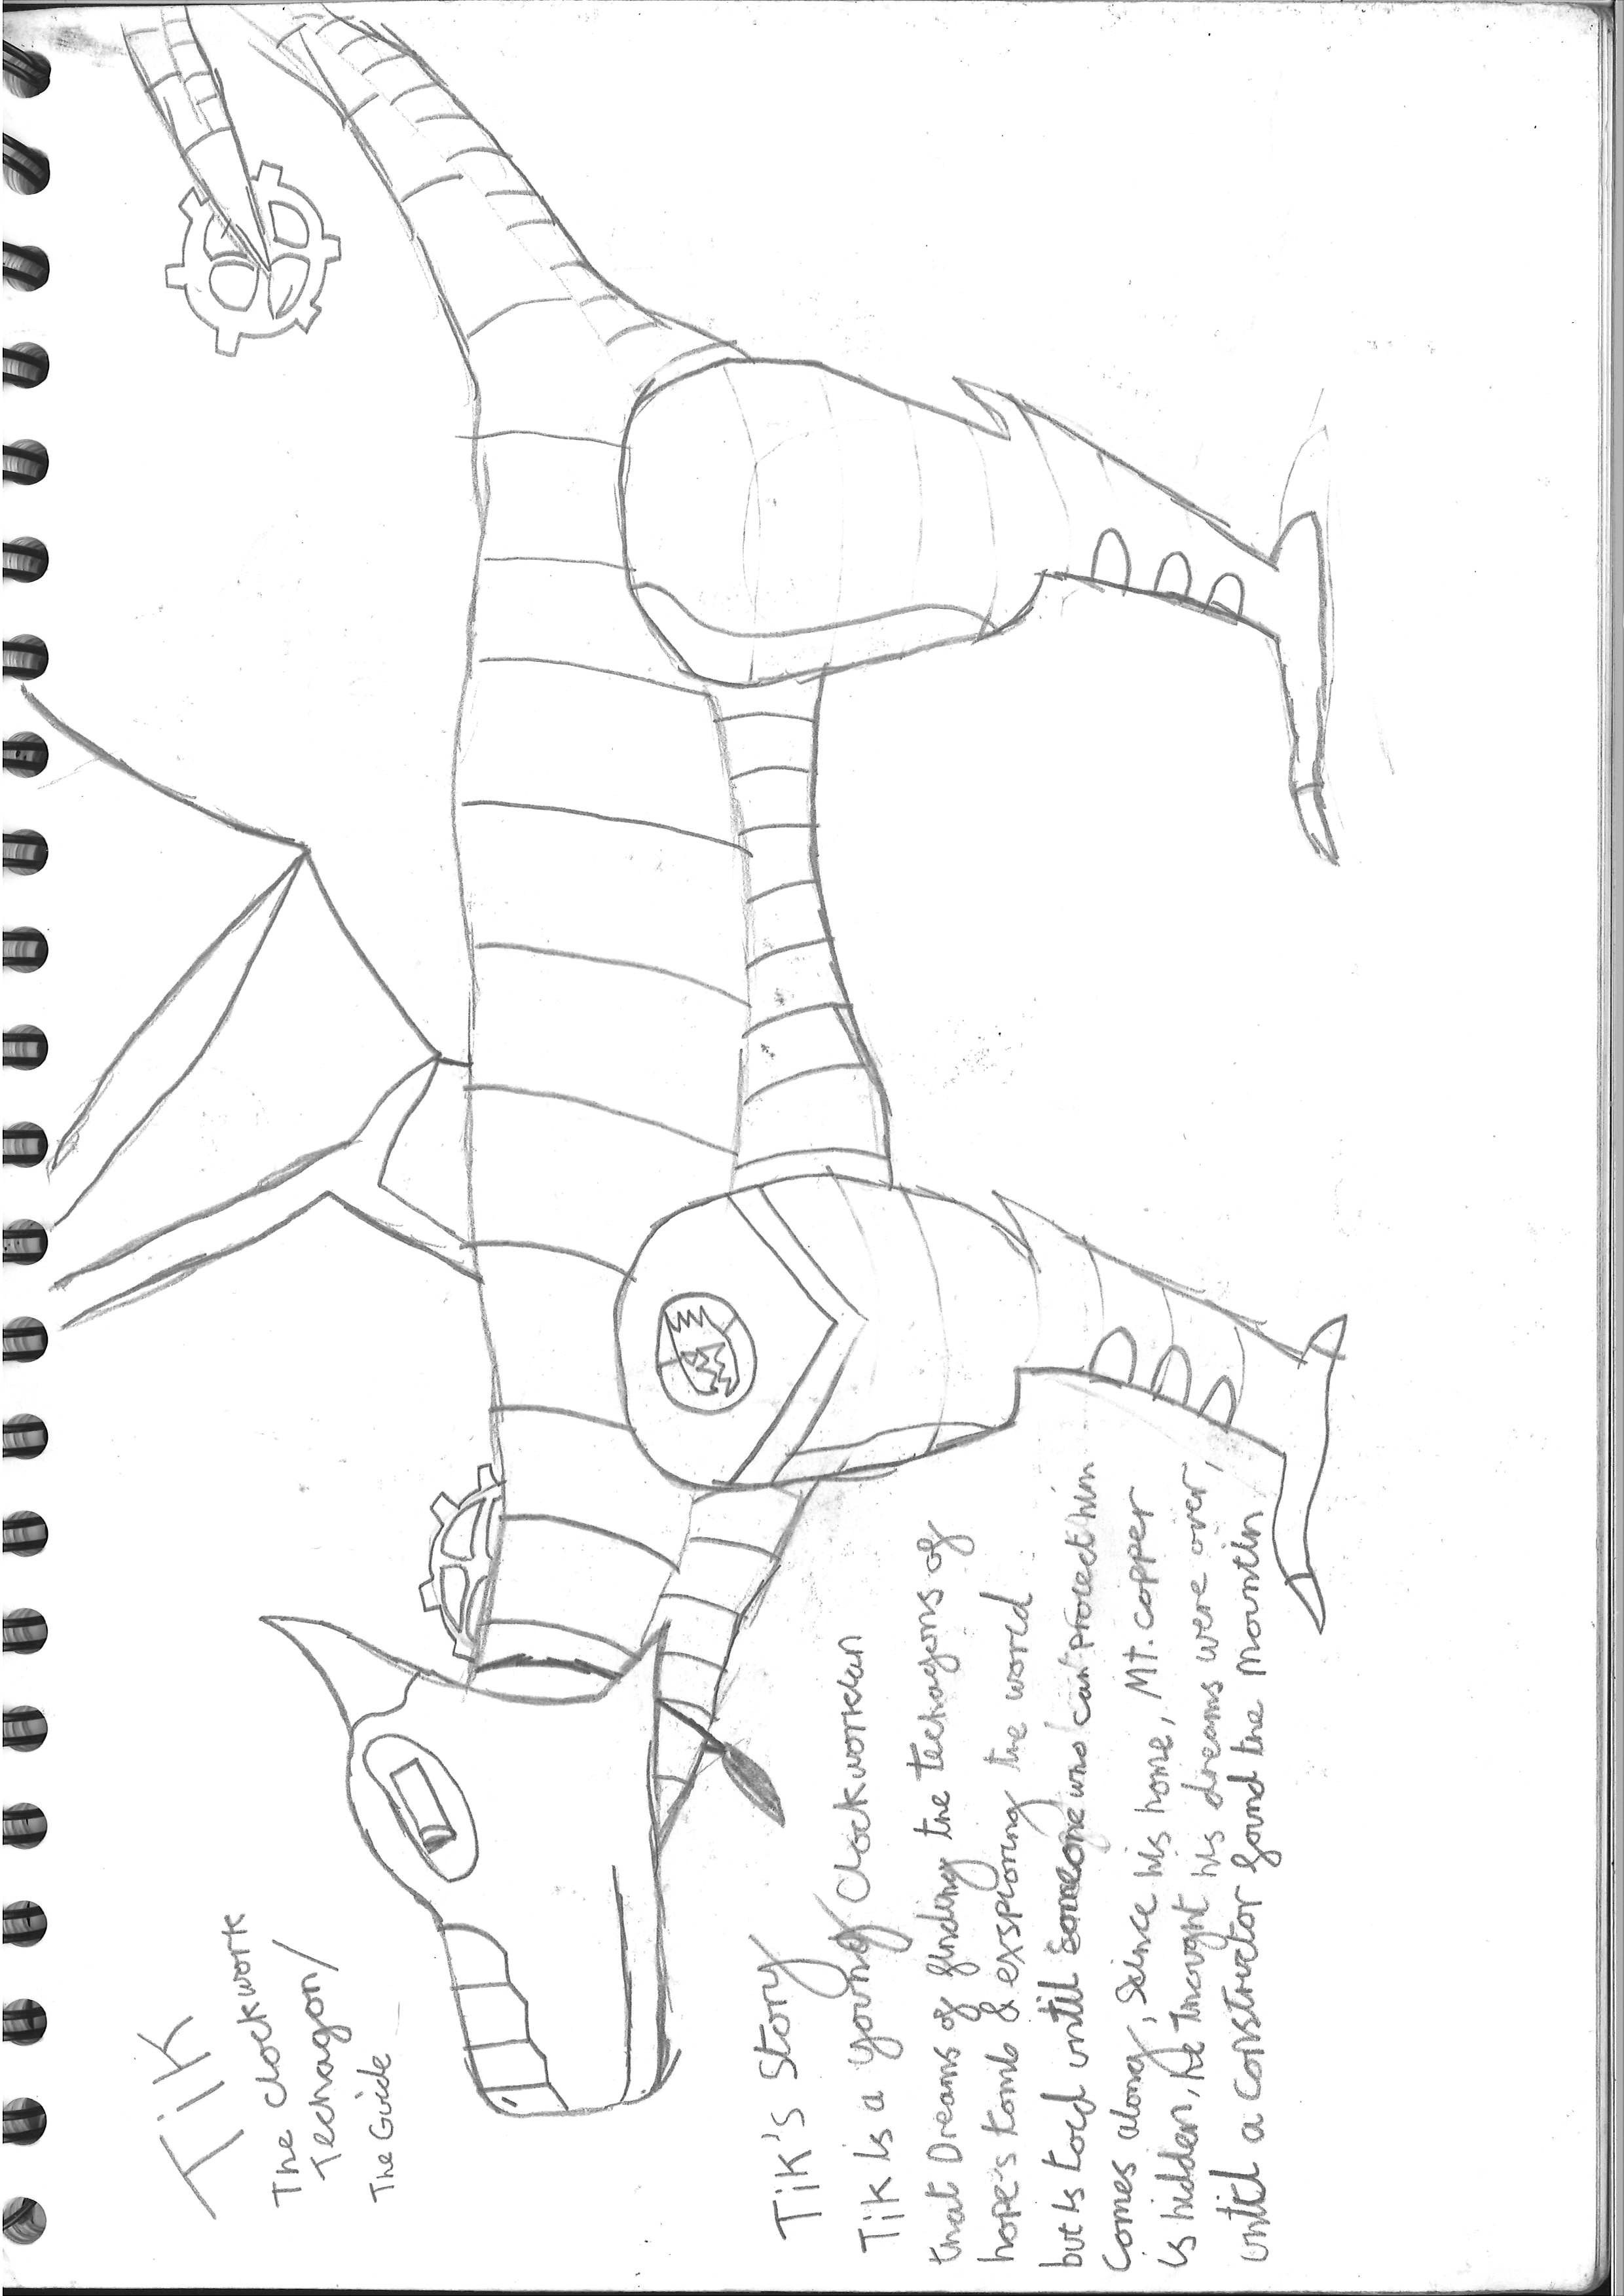 Tik
The clockwork
Techagon/
The Guide
Tik's Story
Tik is a young clockworkan
that Dreams of finding the techagons of
hope's tomb & exsploring the world
but is told until someone who can protect him
comes along, Seince his home, Mt. copper
is hidden, he thought his dreams were over,
until a constructor found the mountin